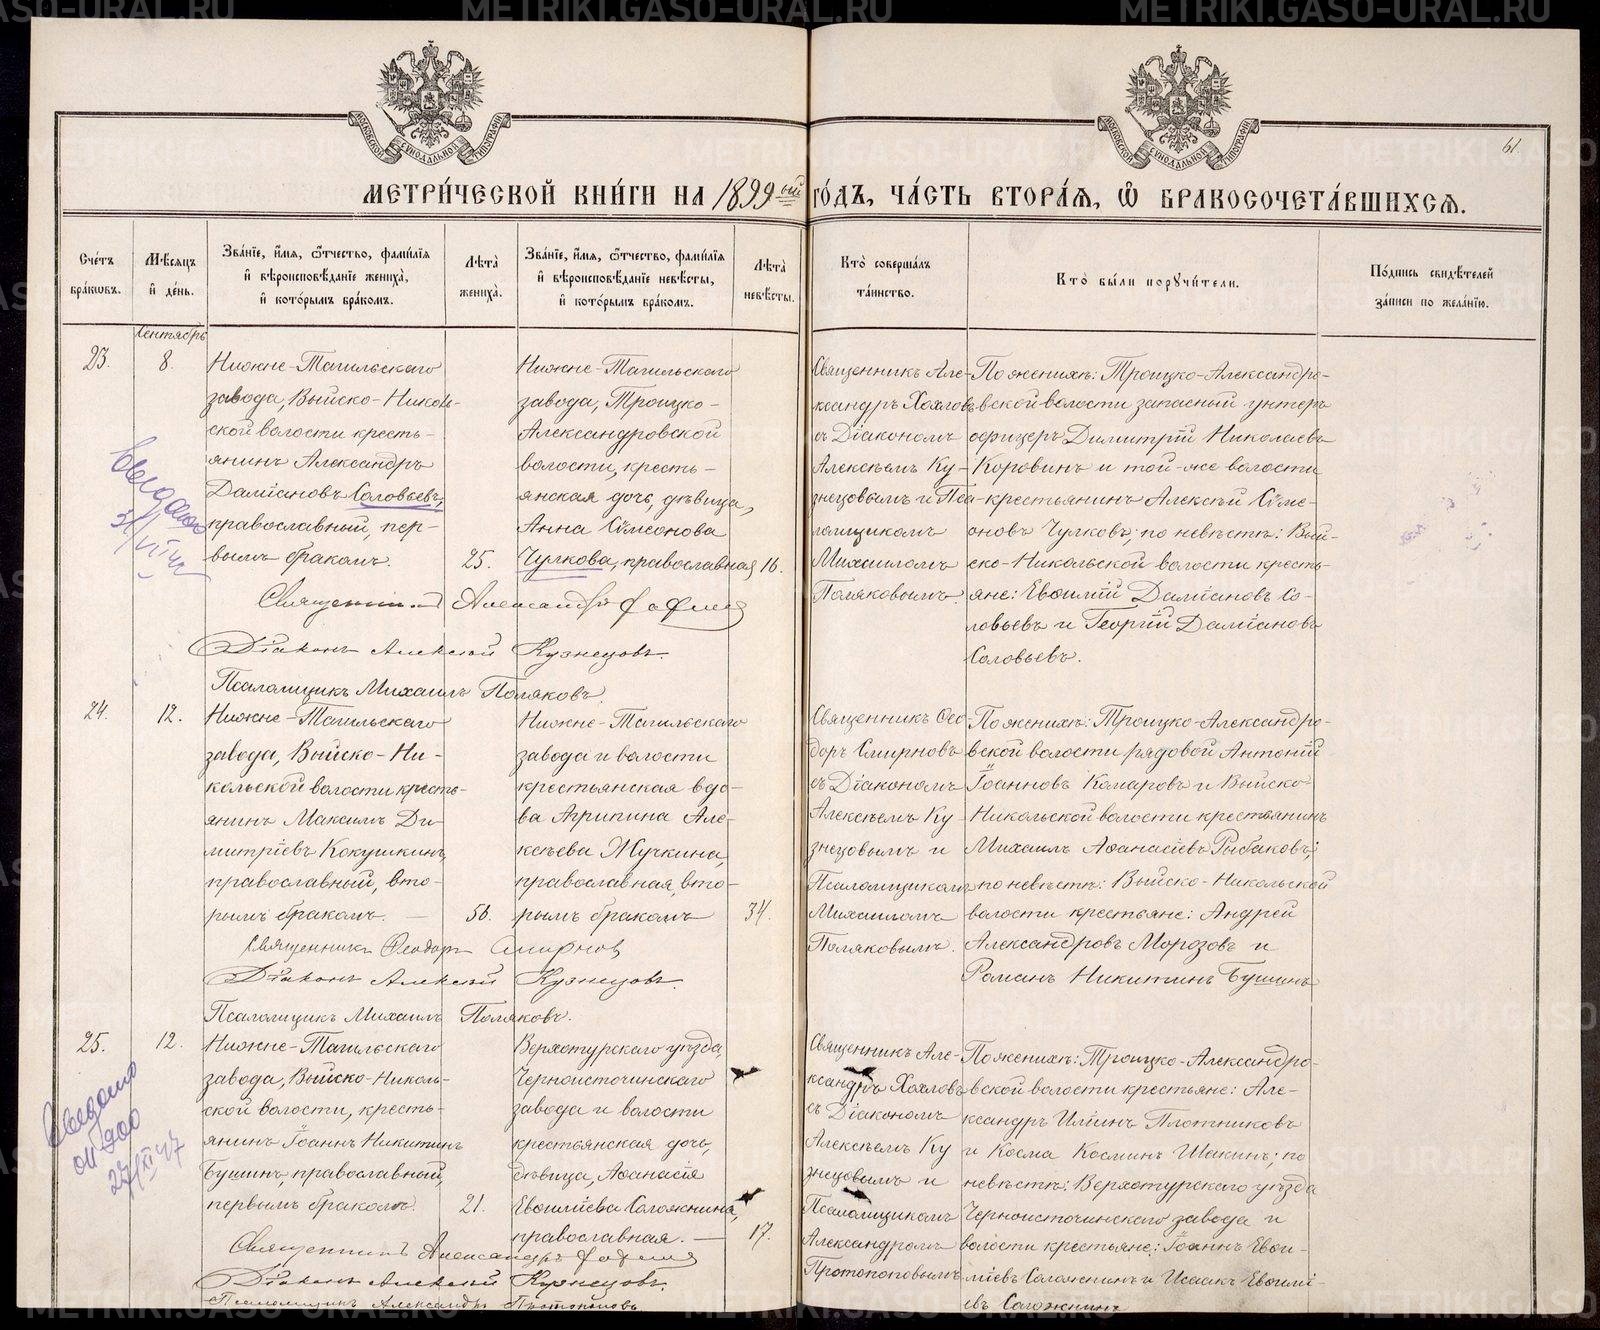 МЕТРИ́ЧЕСКОЙ КНИ́ГИ НА 1899-ый ГО́ДЪ, ЧА́СТЬ ВТОРА́Я, Ѽ БРАКОСОЧЕТА́ВШИХСЯ.
61.
Сче́тъ бра́ковъ.
Мѣ́сяцъ и҆ де́нь.
Зва́нїе, и҆́мя, ѻ҆́тчество, фами́лїя и҆ вѣроисповѣ́данїе жениха̀, и҆ кото́рымъ бра́комъ.
Лѣ́та жениха̀.
Зва́нїе, и҆́мя, ѻ҆́тчество, фами́лїя и҆ вѣроисповѣ́данїе невѣ́сты, и҆ кото́рымъ бра́комъ.
Лѣ́та невѣ́сты.
Кто̀ соверша́лъ та́инство.
Кто̀ бы́ли порꙋчи́тели.
По́дпись свидѣ́телей за́писи по жела́нїю.
Сентябрь
23.
8.
Нижне-Тагильскаго
завода, Выйско-Николь-
ской волости кресть-
янинъ Александръ
Даміановъ Соловьевъ,
православный, пер-
вымъ бракомъ.
25.
Нижне-Тагильскаго
завода, Троицко-
Александровской
волости, кресть-
янская дочь, дѣвица,
Анна Сѵмеонова
Чулкова, православная
16.
Священникъ Але-
ксандръ Хохловъ
съ Діакономъ
Алексѣемъ Ку-
знецовымъ и Пса-
ломщикомъ
Михаиломъ
Поляковымъ.
По женихѣ: Троицко-Александро-
вской волости запасный унтеръ
офицеръ Димитрій Николаевъ
Коровинъ и той-же волости
крестьянинъ Алексѣй Сѵме-
оновъ Чулковъ; по невѣстѣ: Вый-
ско-Никольской волости кресть-
яне: Евѳимій Даміановъ Со-
ловьевъ и Георгій Даміановъ
Соловьевъ.
Священникъ Александръ
Діаконъ Алексѣй Кузнецовъ.
Псаломщикъ Михаилъ Поляковъ.
24.
12.
Нижне-Тагильскаго
завода, Выйско-Ни-
кольской волости кресть-
янинъ Максимъ Ди-
митріевъ Кокушкинъ,
православный, вто-
рымъ бракомъ. —
56.
Нижне-Тагильскаго
завода и волости
крестьянская вдо-
ва Агрипина Але-
ксѣева Жучкина,
православная, вто-
рымъ бракомъ
34.
Священникъ Ѳео-
доръ Смирновъ
съ Діакономъ
Алексѣемъ Ку-
знецовымъ и
Псаломщикомъ
Михаиломъ
Поляковымъ.
По женихѣ: Троицко-Александро-
вской волости рядовой Антоній
Іоанновъ Комаровъ и Выйско-
Никольской волости крестьянинъ
Михаилъ Аѳанасіевъ Рыбаковъ;
по невѣстѣ: Выйско-Никольской
волости крестьяне: Андрей
Александровъ Морозовъ и
Романъ Никитинъ Бушинъ
Священникъ Ѳеодоръ Смирновъ
Діаконъ Алексѣй Кузнецовъ.
Псаломщикъ Михаилъ Поляковъ.
25.
12.
Нижне-Тагильскаго
завода, Выйско-Николь-
ской волости, кресть-
янинъ Іоаннъ Никитинъ
Бушинъ, православный,
первымъ бракомъ.
21.
Верхотурскаго уѣзда,
Черноисточинскаго
завода и волости
крестьянская дочь,
дѣвица, Аѳанасія
Евѳиміева Саложнина,
православная. —
17.
Священникъ Але-
ксандръ Хохловъ
съ Діакономъ
Алексѣемъ Ку
знецовымъ и
Псаломщикомъ
Александромъ
Протопоповымъ
По женихѣ: Троицко-Александро-
вской волости крестьяне: Але-
ксандръ Иліинъ Плотниковъ
и Косма Косминъ Шакинъ; по
невѣстѣ: Верхотурскаго уѣзда
Черноисточинскаго завода и
волости крестьяне: Іоаннъ Евѳи-
міевъ Саложнинъ и Исаакъ Евѳимі-
евъ Саложнинъ
Священникъ Александръ
Діаконъ Алексѣй Кузнецовъ.
Псаломщикъ Александръ Протопоповъ
METRIKI.GASO-URAL.RU